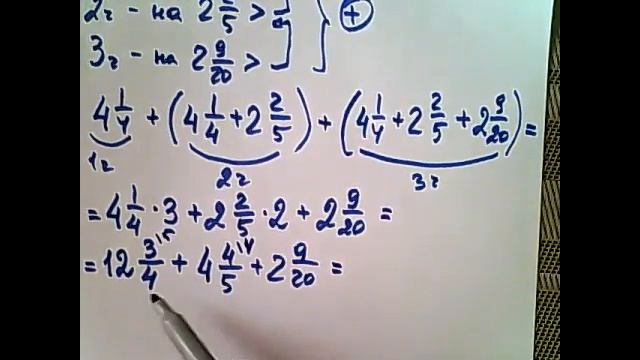 2г - на 2 2/5 >
3г - на 2 9/20 > +
4 1/4 + (4 1/4 + 2 2/5) + (4 1/4 + 2 2/5 + 2 9/20) =
1г 2г 3г
= 4 1/4 · 3 + 2 2/5 · 2 + 2 9/20 =
= 12 3/4 \5 + 4 4/5 \4 + 2 9/20 =